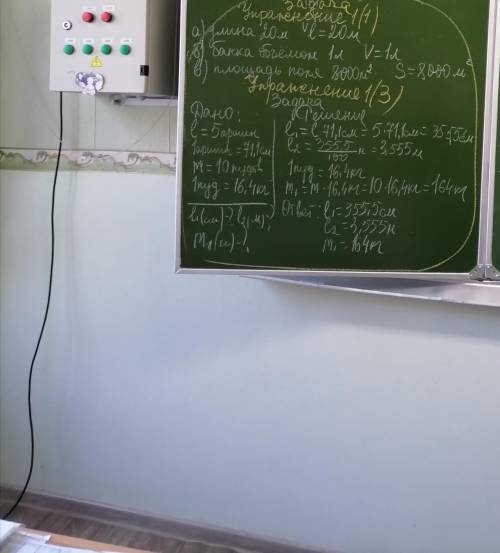 Задача
Упражнение 1(1)
а) длина 20м l=20м
б) банка объемом 1л V=1л
в) площадь поля 8000м² S=8000м²
Упражнение 1(3)
Задача
Дано:
l=5аршин
1аршин=71,1см
m=10пудов
1пуд=16,4кг
l₁(см)-? l₂(м)-?
m₁(кг)-?
Решение
l₁=l·71,1см=5·71,1см=355,5см
l₂=355,5/100м=3,555м
1пуд=16,4кг
m₁=m·16,4кг=10·16,4кг=164кг
Ответ: l₁=355,5см
l₂=3,555м
m₁=164кг